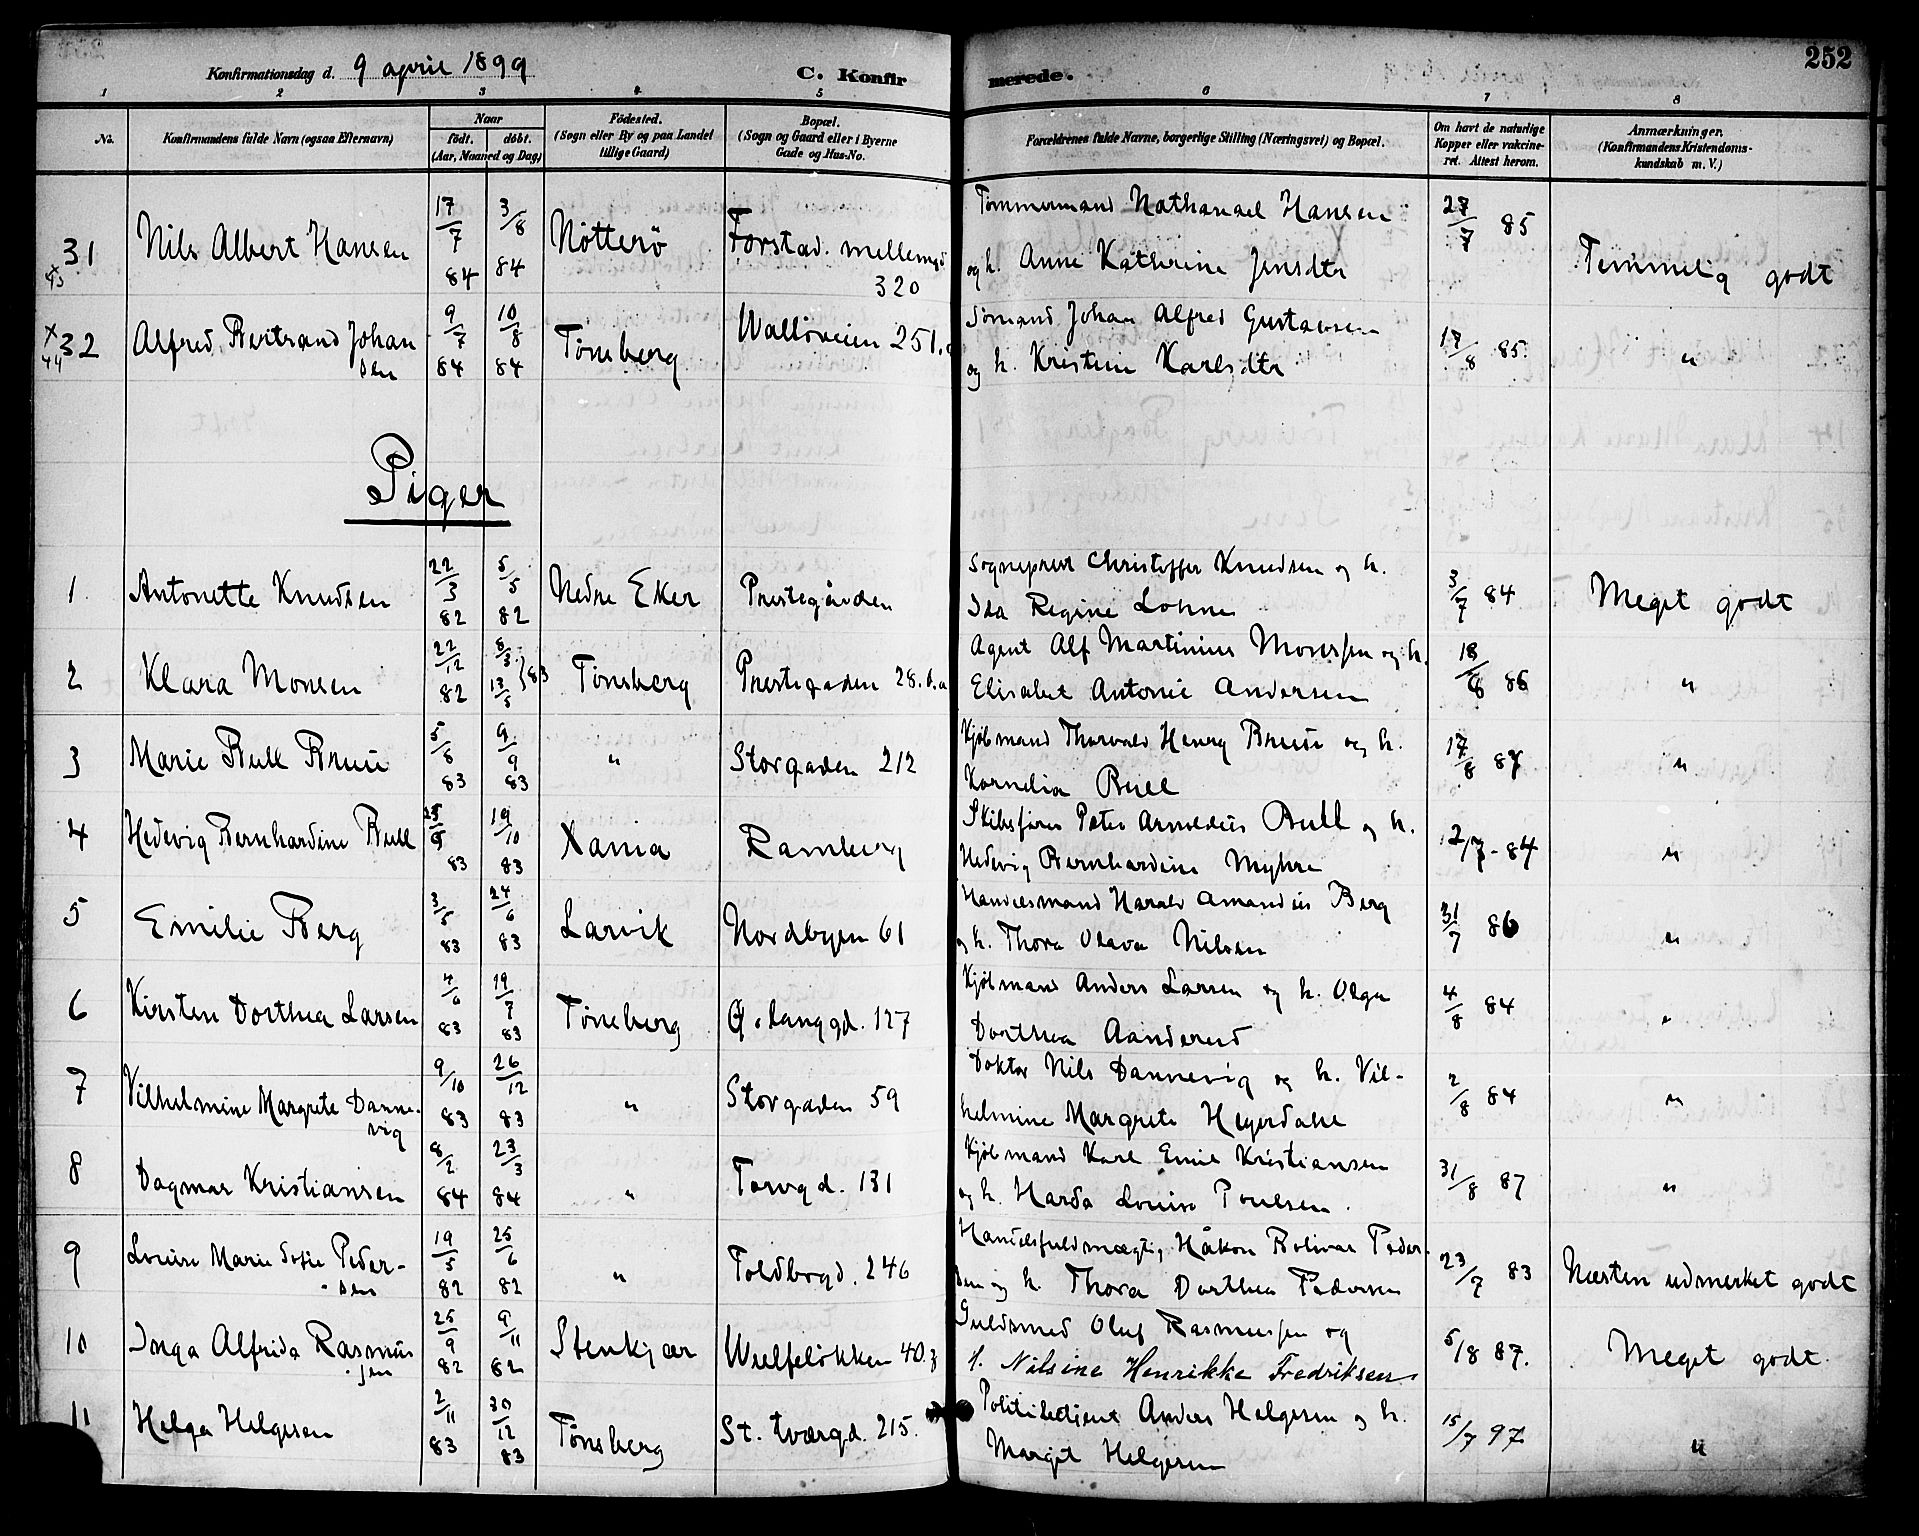 252
Konfirmationsdag d. 9 april 1899 C. Konfirmerede.
1 2 3 4 5 6 7 8
No. Konfirmandens fulde Navn (ogsaa Efternavn) Naar Fødested. Bopæl. Forældrenes fulde Navne, borgerlige Stilling (Næringsvei) og Bopæl. Om havt de naturlige Anmærkninger.
født. døbt. (Sogn eller By og paa Landet (Sogn og Gaard eller i Byerne Kopper eller vakcine- (Konfirmandens Kristendoms-
(Aar, Maaned og Dag) tillige Gaard) Gade og Hus-No. ret. Attest herom. kundskab m. V.)
31 Nils Albert Hansen 17/7 84 3/8 84 Nötterö Forstad. mellemgd 320 Tömmermand Nathanael Hansen 27/7 85 Temmelig godt
x 43 og h. Anne Kathrine Jensdtr
x 32 Alfred Bertrand Johan 9/7 84 10/8 84 Tönsberg Wallöveien 251. Sömand Johan Alfred Gustavsen 17/8 85. "
44 sen og h. Kristine Karlsdtr
Piger
1. Antonette Knudsen 22/3 82 5/5 82 Nedre Eker Prestegården Sogneprest Christoffer Knudsen og h. 3/7 84 Meget godt
Ida Regine Lohne
2 Klara Monsen 22/12 82 8/3 13/5 } 83 Tönsberg Prestegaden 28.b.a Agent Alf Martinius Monssen og h. 18/8 86 "
Elisabet Antonie Andersen
3 Marie Bull Bruu 5/8 83 9/9 83 " Storgaden 212 Kjöbmand Thorvald Henry Bruu og h. 17/8 87 "
Kornelia Bull
4 Hedevig Bernhardine Bull 25/5 83 19/10 83 Xania Ramberg Skibsförer Peter Arnoldus Bull og h. 12/7 - 84 "
Hedevig Bernhardine Myhre
5 Emilie Berg 3/5 83 24/6 83 Larvik Nordbyen 61 Handelsmand Harald Amandus Berg 31/7 86 "
og h. Thora Olava Nilsen
6 Kirsten Dorthea Larsen 4/6 83 19/7 83 Tönsberg Ø. langgd. 127 Kjöbmand Anders Larsen og h. Olga 4/8 84 "
Dorthea Aanderud
7 Vilhelmine Margrete Danne- 9/10 83 26/12 83 " Storgaden 59 Doktor Nils Dannevig og h. Vil- 2/8 84 "
vig helmine Margrete Heyerdahl
8 Dagmar Kristiansen 8/2 84 23/3 84 " Torvgd. 131 Kjöbmand Karl Emil Kristiansen 31/8 87 "
og h. Harda Louise Poulsen.
9 Louise Marie Sofie Peder- 19/5 82 25/6 82 " Toldbogd. 246 Handelsfuldmægtig Håkon Bolivar Peder- 23/7 83 Næsten udmerket godt
sen sen og h. Thora Dorthea Pedersen
10 Inga Alfrida Rasmus 25/9 82 9/11 82 Stenkjær Wulfelökken 40.3 Guldsmed Oluf Rasmussen og 5/8 87. Meget godt
sen h. Nilsine Henrikke Fredriksen
11 Helga Helgesen 2/11 83 30/12 83 Tönsberg St. tværgd. 215. Politibetjent Anders Helgesen og h. 15/7 97 "
Margit Helgesen